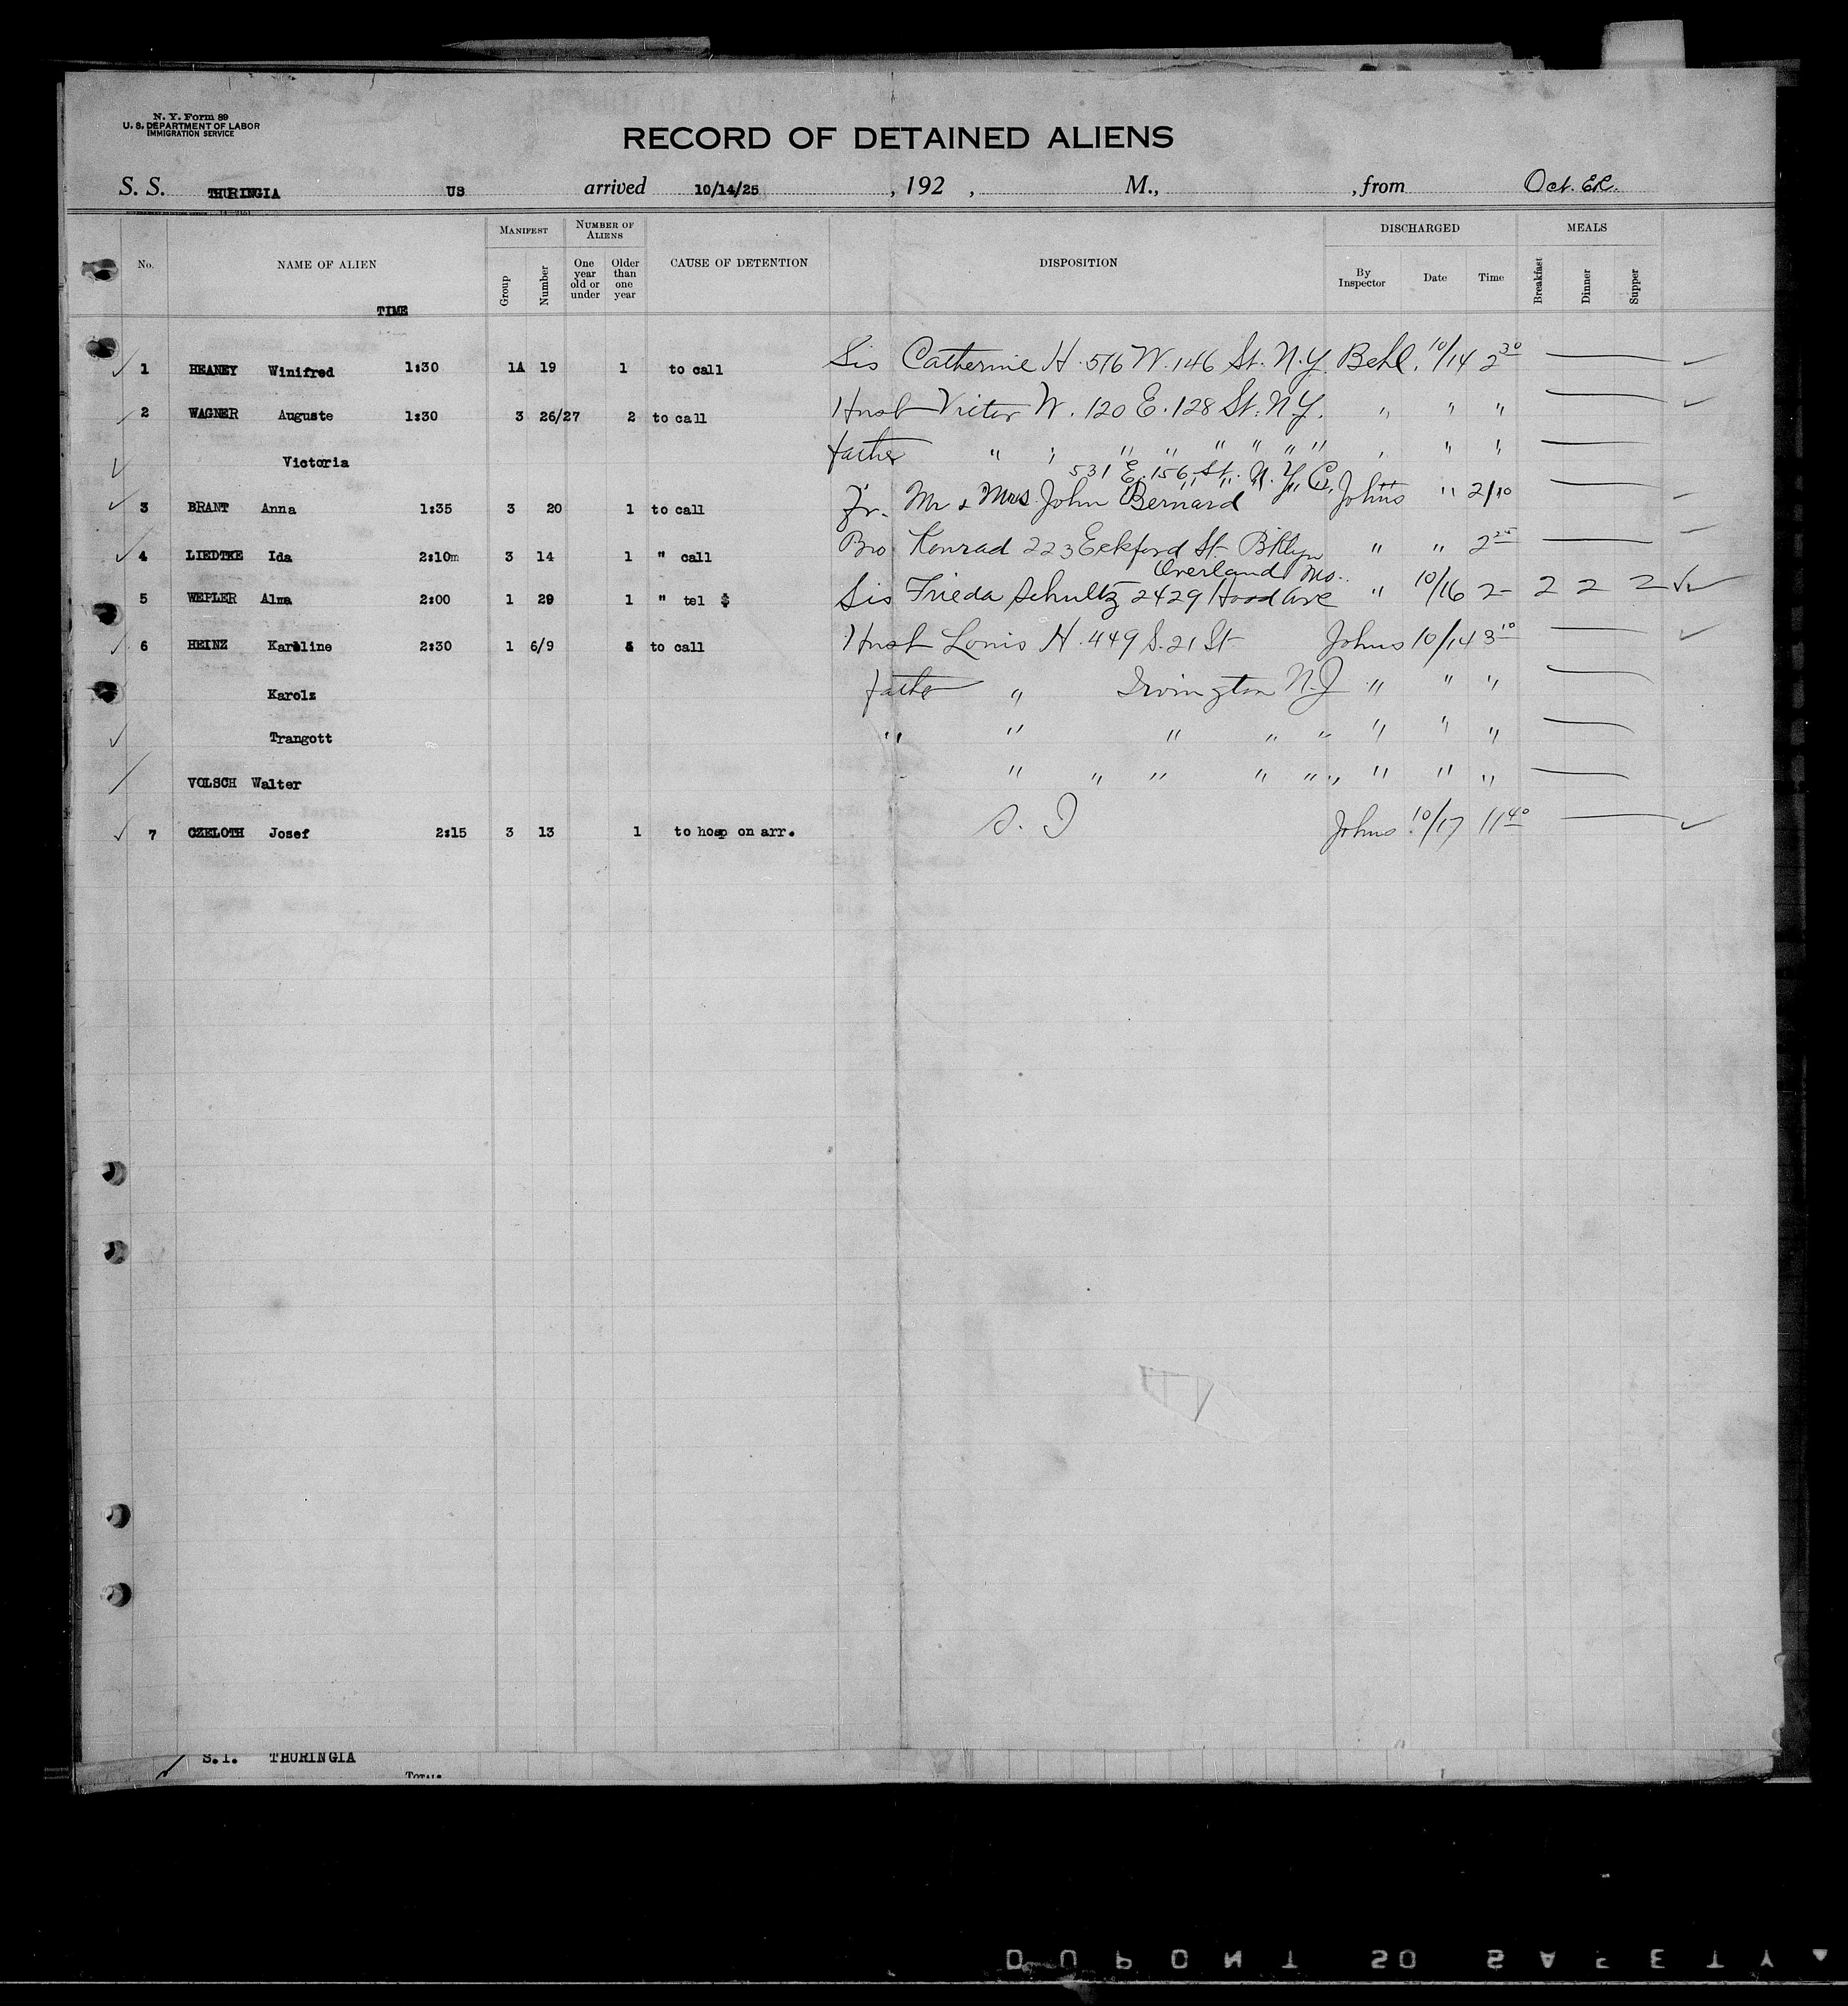 N. Y. Form 89
U. S. DEPARTMENT OF LABOR
IMMIGRATION SERVICE
RECORD OF DETAINED ALIENS
S. S. THURINGIA US arrived 10/14/25 , 192 , M., , from Oct. ER.
No. NAME OF ALIEN TIME MANIFEST Group Number NUMBER OF ALIENS One year old or under Older than one year CAUSE OF DETENTION DISPOSITION DISCHARGED By Inspector Date Time MEALS Breakfast Dinner Supper
1 HEANEY Winifred 1:30 1A 19 1 to call Sis Catherine H. 516 W. 146 St. N.Y. Behl. 10/14 2 30
2 WAGNER Auguste 1:30 3 26/27 2 to call Husb Victor W. 120 E. 128 St. N.Y. " " "
Victoria father " " " " " " " " " " "
531 E. 156 St. N. Y. C.
3 BRANT Anna 1:35 3 20 1 to call Fr. Mr & Mrs. John Bernard Johns " 2/10
4 LIEDTKE Ida 2:10m 3 14 1 " call Bro Konrad 223 Eckford St. Bklyn " " 2 25
Overland Mo.
5 WEPLER Alma 2:00 1 29 1 " tel $ Sis Frieda Schultz 2429 Hood Ave " 10/16 2- 2 2 2
6 HEINZ Karoline 2:30 1 6/9 to call Husb Louis H. 449 S. 21 St Johns 10/14 3 10
Karolz father " Irvington N.J " " "
Trangott " " " " " " " "
VOLSCH Walter " " " " " " " " "
7 CZELOTH Josef 2:15 3 13 1 to hosp on arr. S. I Johns 10/17 11 40
S.I. THURINGIA
TOTAL
DUPONT SO SAFETY